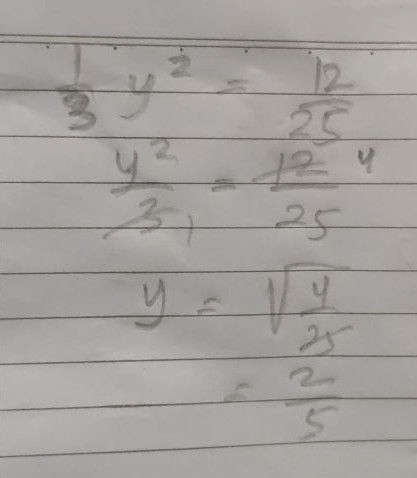 1/3 y² = 12/25
y²/3 1 = 12/25 4
y = √(4/25)
= 2/5